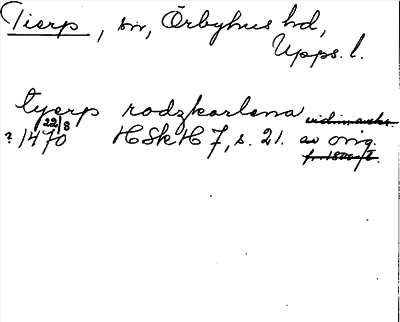 Tierp, sn, Örbyhus hd,
Upps. l.
tyerp rodzkarlena vidimerAde
22/8
? 1470 HSkH 7, s. 21. av orig.
fr. 1500-t.